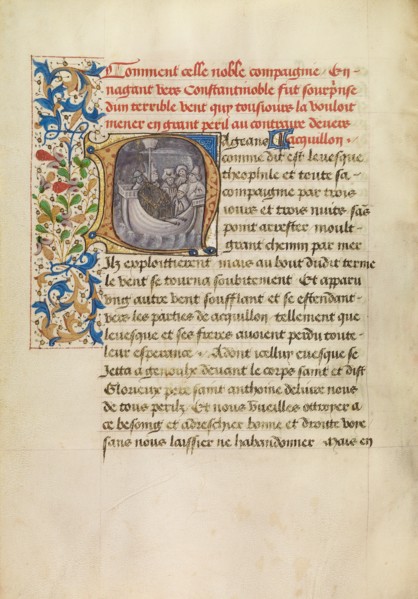 Comment celle noble compaignie En
nagant vers Constantinoble fut sourprinse
dun terrible vent quy tousiours la vouloit
mener en grant peril au contraire devers
Nageans Lacquillon
comme dit est levesque
theophile et toute sa
compaignie par trois
iours et trois nuits sãs
point arrester moult
grant chemin par mer
Ilz exploittierent mais au bout dudit terme
le vent se tourna soubitement Et apparu
ung autre vent soufflant et se estendant
vers les parties de acquillon tellement que
levesque et ses freres avoient perdu toute
leur esperance Adont icelluy evesque se
Jetta a genoulx devant le corps saint et dist
Glorieux pere saint anthoine delivre nous
de tous perilz Et nous vueilles ottroyer a
ce besoing et adreschier bonne et droitte voye
sans nous laissier ne habandonner Mais en